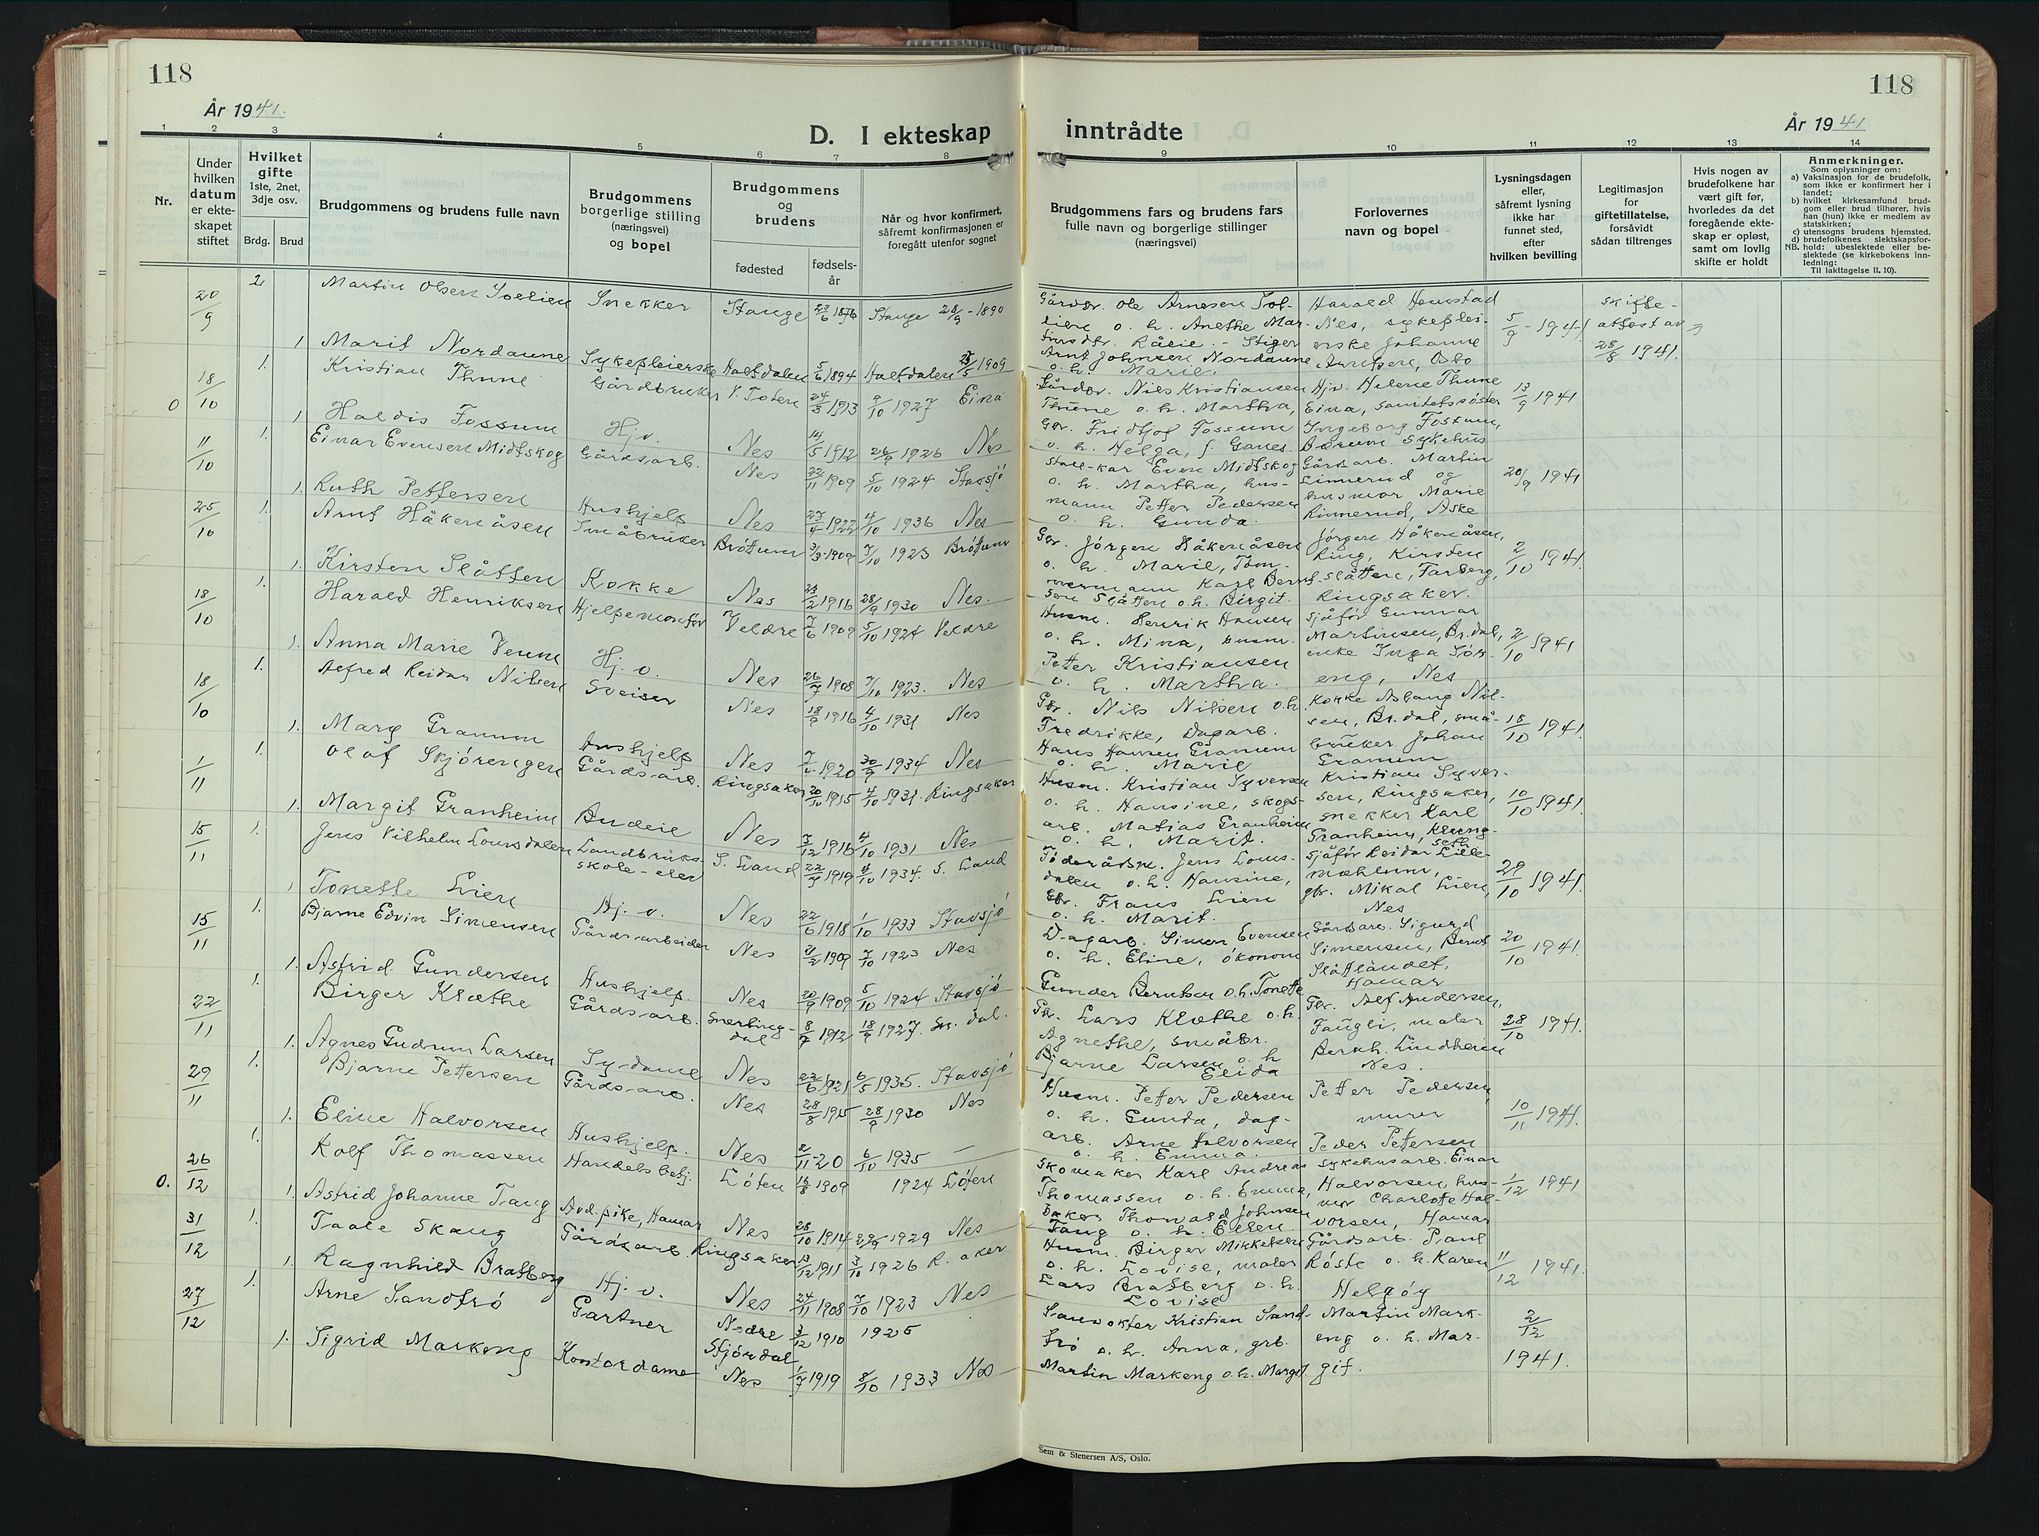 118
118
År 1941.
År 1941
D. I ekteskap inntrådte
1 2 3 4 5 6 7 8 9 10 11 12 13 14
Nr.
Under
hvilken
datum
er ekte-
skapet
stiftet
Hvilket
gifte
1ste, 2net,
3dje osv.
Brdg. Brud
Brudgommens og brudens fulle navn
Brudgommens
borgerlige stilling
(næringsvei)
og bopel
Brudgommens
og
brudens
fødested
fødsels-
år
Når og hvor konfirmert,
såfremt konfirmasjonen er
foregått utenfor sognet
Brudgommens fars og brudens fars
fulle navn og borgerlige stillinger
(næringsvei)
Forlovernes
navn og bopel
Lysningsdagen
eller,
såfremt lysning
ikke har
funnet sted,
efter
hvilken bevilling
Legitimasjon
for
giftetillatelse,
forsåvidt
sådan tiltrenges
Hvis nogen av
brudefolkene har
vært gift før,
hvorledes da det
foregående ekte-
skap er opløst,
samt om lovlig
skifte er holdt
Anmerkninger.
Som oplysninger om:
a) Vaksinasjon for de brudefolk,
som ikke er konfirmert her i
landet;
b) hvilket kirkesamfund brud-
gom eller brud tilhører, hvis
han (hun) ikke er medlem av
statskirken;
c) utensogns brudens hjemsted.
d) brudefolkenes slektskapsfor-
NB. hold: ubeslektede eller be-
slektede (se kirkebokens inn-
ledning:
Til iakttagelse II, 10).
20/9 2. Martin Olsen Snekker Stange 23/6 1876 Stange 28/9 - 1890
Gårdbr. Ole Arnesen
o. h. Anethe Mar-
Harald
Nes, sykeplei-
erske Johanne
Oslo
5/9 - 1941.
skifte-
attest av
28/8 1941.
1 Marit Nordaune Sykepleierske Haltdalen 5/6 1894 Haltdalen 1909
Arnt Johnsen Nordaune
o. h. Marie.
0 18/10 1. Kristian Thune Gårdbruker V. Toten 24/3 1913 9/10 1927 Eina
Gårdbr. Nils Kristiansen
Thune o. h. Martha,
Hjv. Helene Thune
Eina, sanitetssøster
Ingeborg Fossum,
Bærum sykehus
13/9 1941
1 Haldis Fossum Hj. v. Nes 14/5 1912 26/9 1926 Nes
Gbr. Fridtjof Fossum
o. h. Helga, f. Ganes.
11/10 1. Einar Evensen Midtskog Gårdsarb. Nes 22/11 1909 5/10 1924 Stavsjø
Stall-kar Even Midtskog
o. h. Martha, hus-
Gårdsarb. Martin
Linnerud og
husmor Marie
20/9 1941
1. Ruth Pettersen Hushjelp Nes 27/4 1922 4/10 1936 Nes
mann Petter Pedersen
o. h. Gunda.
25/10 1. Arnt Håkenåsen Småbruker Brøttum 3/3 1909 7/10 1923 Brøttum
Gbr. Jørgen Håkenåsen
o. h. Marie, Tøm-
Jørgen Håkenåsen,
Ring, Kirsten
Slåtten, Farberg,
Ringsaker.
2/10 1941.
1. Kirsten Slåtten Kokke Nes 23/2 1916 28/9 1930 Nes.
mermann Karl Bernt-
sen Slåtten o.h. Birgit.
18/10 1. Harald Henriksen Hjelpemontør Veldre 7/6 1909 5/10 1924 Veldre
Husm. Henrik Hansen
o. h. Mina, husm.
Sjåfør Gunnar
Martinsen, Br.dal,
enke Inga Sør-
eng, Nes
2/10 1941
1. Anna Marie Hj. v. Nes 26/7 1908 7/10 1923. Nes
Petter Kristiansen
o. h. Martha.
18/10 1. Alfred Reidar Nilsen Sveiser Nes 18/9 1916 4/10 1931 Nes
Gbr. Nils Nilsen o.h.
Fredrikke, Dagarb.
Kokke Aslaug Nil-
sen, Br.dal, små-
bruker Johan
Gramum
18/10 1941.
1. Mary Gramum Hushjelp Nes 1920 30/9 1934 Nes
Hans Hansen Gramum
o. h. Marie
1/11 1. Olaf Skjørengen Gårdsarb. Ringsaker 20/10 1915 4/10 1931. Ringsaker
Husm. Kristian Syversen
o. h. Hansine, skogs-
Kristian Syver-
sen, Ringsaker,
snekker Karl
Granheim,
10/10 1941.
1. Margit Granheim Budeie Nes 7/12 1916 4/10 1931 Nes
arb. Matias Granheim
o. h. Marit.
15/11 1. Jens Vilhelm Lomsdalen Landbruks-
skole-elev S. Land 22/9 1919 4/10 1934. S. Land
Føderådsm. Jens Loms-
dalen o.h. Hansine,
Sjåfør Reidar Lille-
mæhlum,
gbr. Mikal Lien,
Nes
29/10 1941.
1 Tonette Lien Hj. v. Nes 22/6 1918 1/10 1933 Stavsjø
Gbr. Frans Lien
o. h. Marit.
15/11 1. Bjarne Edvin Simensen Gårdsarbeider Nes 2/2 1909 7/10 1923 Nes
Dagarb. Simen Evensen
o. h. Eline, økonom
Gårdsarb. Sigurd
Simensen, Bernt
Slåttlandet,
Hamar
20/10 1941.
1. Astrid Gundersen Hushjelp. Nes 20/9 1909 5/10 1924 Stavsjø
Gunder Berntsen o.h. Tonette
22/11 1. Birger Klæthe Gårdsarb. Snerting-
dal 8/7 1912 18/9 1927. Sn. dal.
Gbr. Lars Klæthe o.h.
Agnethe, småbr.
Gbr. Alf Andersen,
Fangli, maler
Berkh. Lindheim
Nes.
28/10 1941.
1. Agnes Gudrun Larsen Sydame Nes 23/6 1921 6/5 1935. Stavsjø
Bjarne Larsen o. h
Elida
29/11 1. Bjarne Pettersen Gårdsarb. Nes 28/8 1915 28/9 1930 Nes
Husm. Petter Pedersen
o. h. Gunda, dag-
Petter Pedersen
murer
10/11 1941.
1. Eline Halvorsen Hushjelp. Nes 2/11-20 6/10 1935 —
arb. Arne Halvorsen
o. h. Emma.
Peder Pettersen
0. 26/12 1. Rolf Thomassen Handelsbetj. Løten 16/8 1909 1924 Løten
Skomaker Karl Andreas
Thomassen o. h. Emma,
sykehusarb. Einar
Halvorsen, hus-
mor Charlotte Hal-
vorsen, Hamar
1/12 1941
1. Astrid Johanne Tang Avd.pike, Hamar Nes 28/10 1914 29/9 1929 Nes
Baker Thorvald Johnsen
Tang o. h. Ellen.
31/12 1. Taale Skaug Gårdsarb. Ringsaker 13/12 1911 3/10 1926 R. aker
Husm. Birger Mikkelsen
o. h. Lovise, maler
Gårdsarb. Paul
Røste o. h. Karen
Helgøy
11/12 1941.
1. Ragnhild Bratberg Hj. v. Nes 24/11 1908 7/10 1923 Nes
Lars Bratberg o.h.
Lovise
27/12 1. Arne Sandtrø Gartner Nedre
Stjørdal 3/12 1910 1925
Kristian Sand-
trø o. h. Anna, grb.
Martin Mark-
eng o. h. Mar-
git.
2/12
1941.
1. Sigrid Markeng Kontordame Nes 1/7 1919 8/10 1933 Nes
Martin Markeng o.h. Margit
Sem & Stenersen A/S, Oslo.